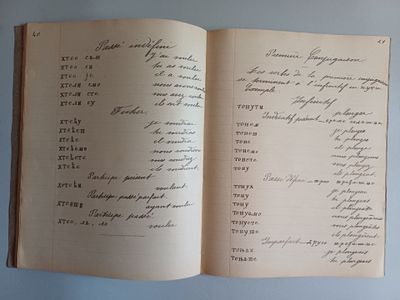 40
Passé indéfini
хтео сам j'ai voulu
хтео си tu as voulu
хтео је il a voulu
хтели смо nous avons voulu
хтели сте vous avez voulu
хтели су ils ont voulu
Futur
хтећу je voudrai
хтећеш tu voudras
хтеће il voudra
хтећемо nous voudrons
хтећете vous voudrez
хтеће ils voudront
Participe présent
хтећи voulant
Participe passé parfait
ayant voulu
Participe passé
хтео, ла, ло voulu
41
Première Conjugaison
Les verbes de la première conjugaison
se terminent à l'infinitif en
Exemple
Infinitif
тонути plonger
Indicatif présent
тонем je plonge
тонеш tu plonges
тоне il plonge
тонемо nous plongeons
тонете vous plongez
тону ils plongent
тонух je plongeai
тону tu plongeas
тону il plongea
тонусмо nous plongeâmes
тонусте vous plongeâtes
тонуше ils plongèrent
Imparfait
тоњах je plongeais
тоњаше tu plongeais